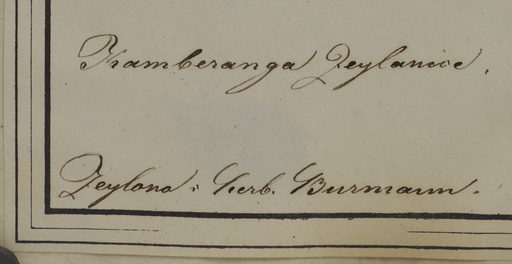 Kamberanga Zeylanice.
Zeylona: Herb. Burmann.